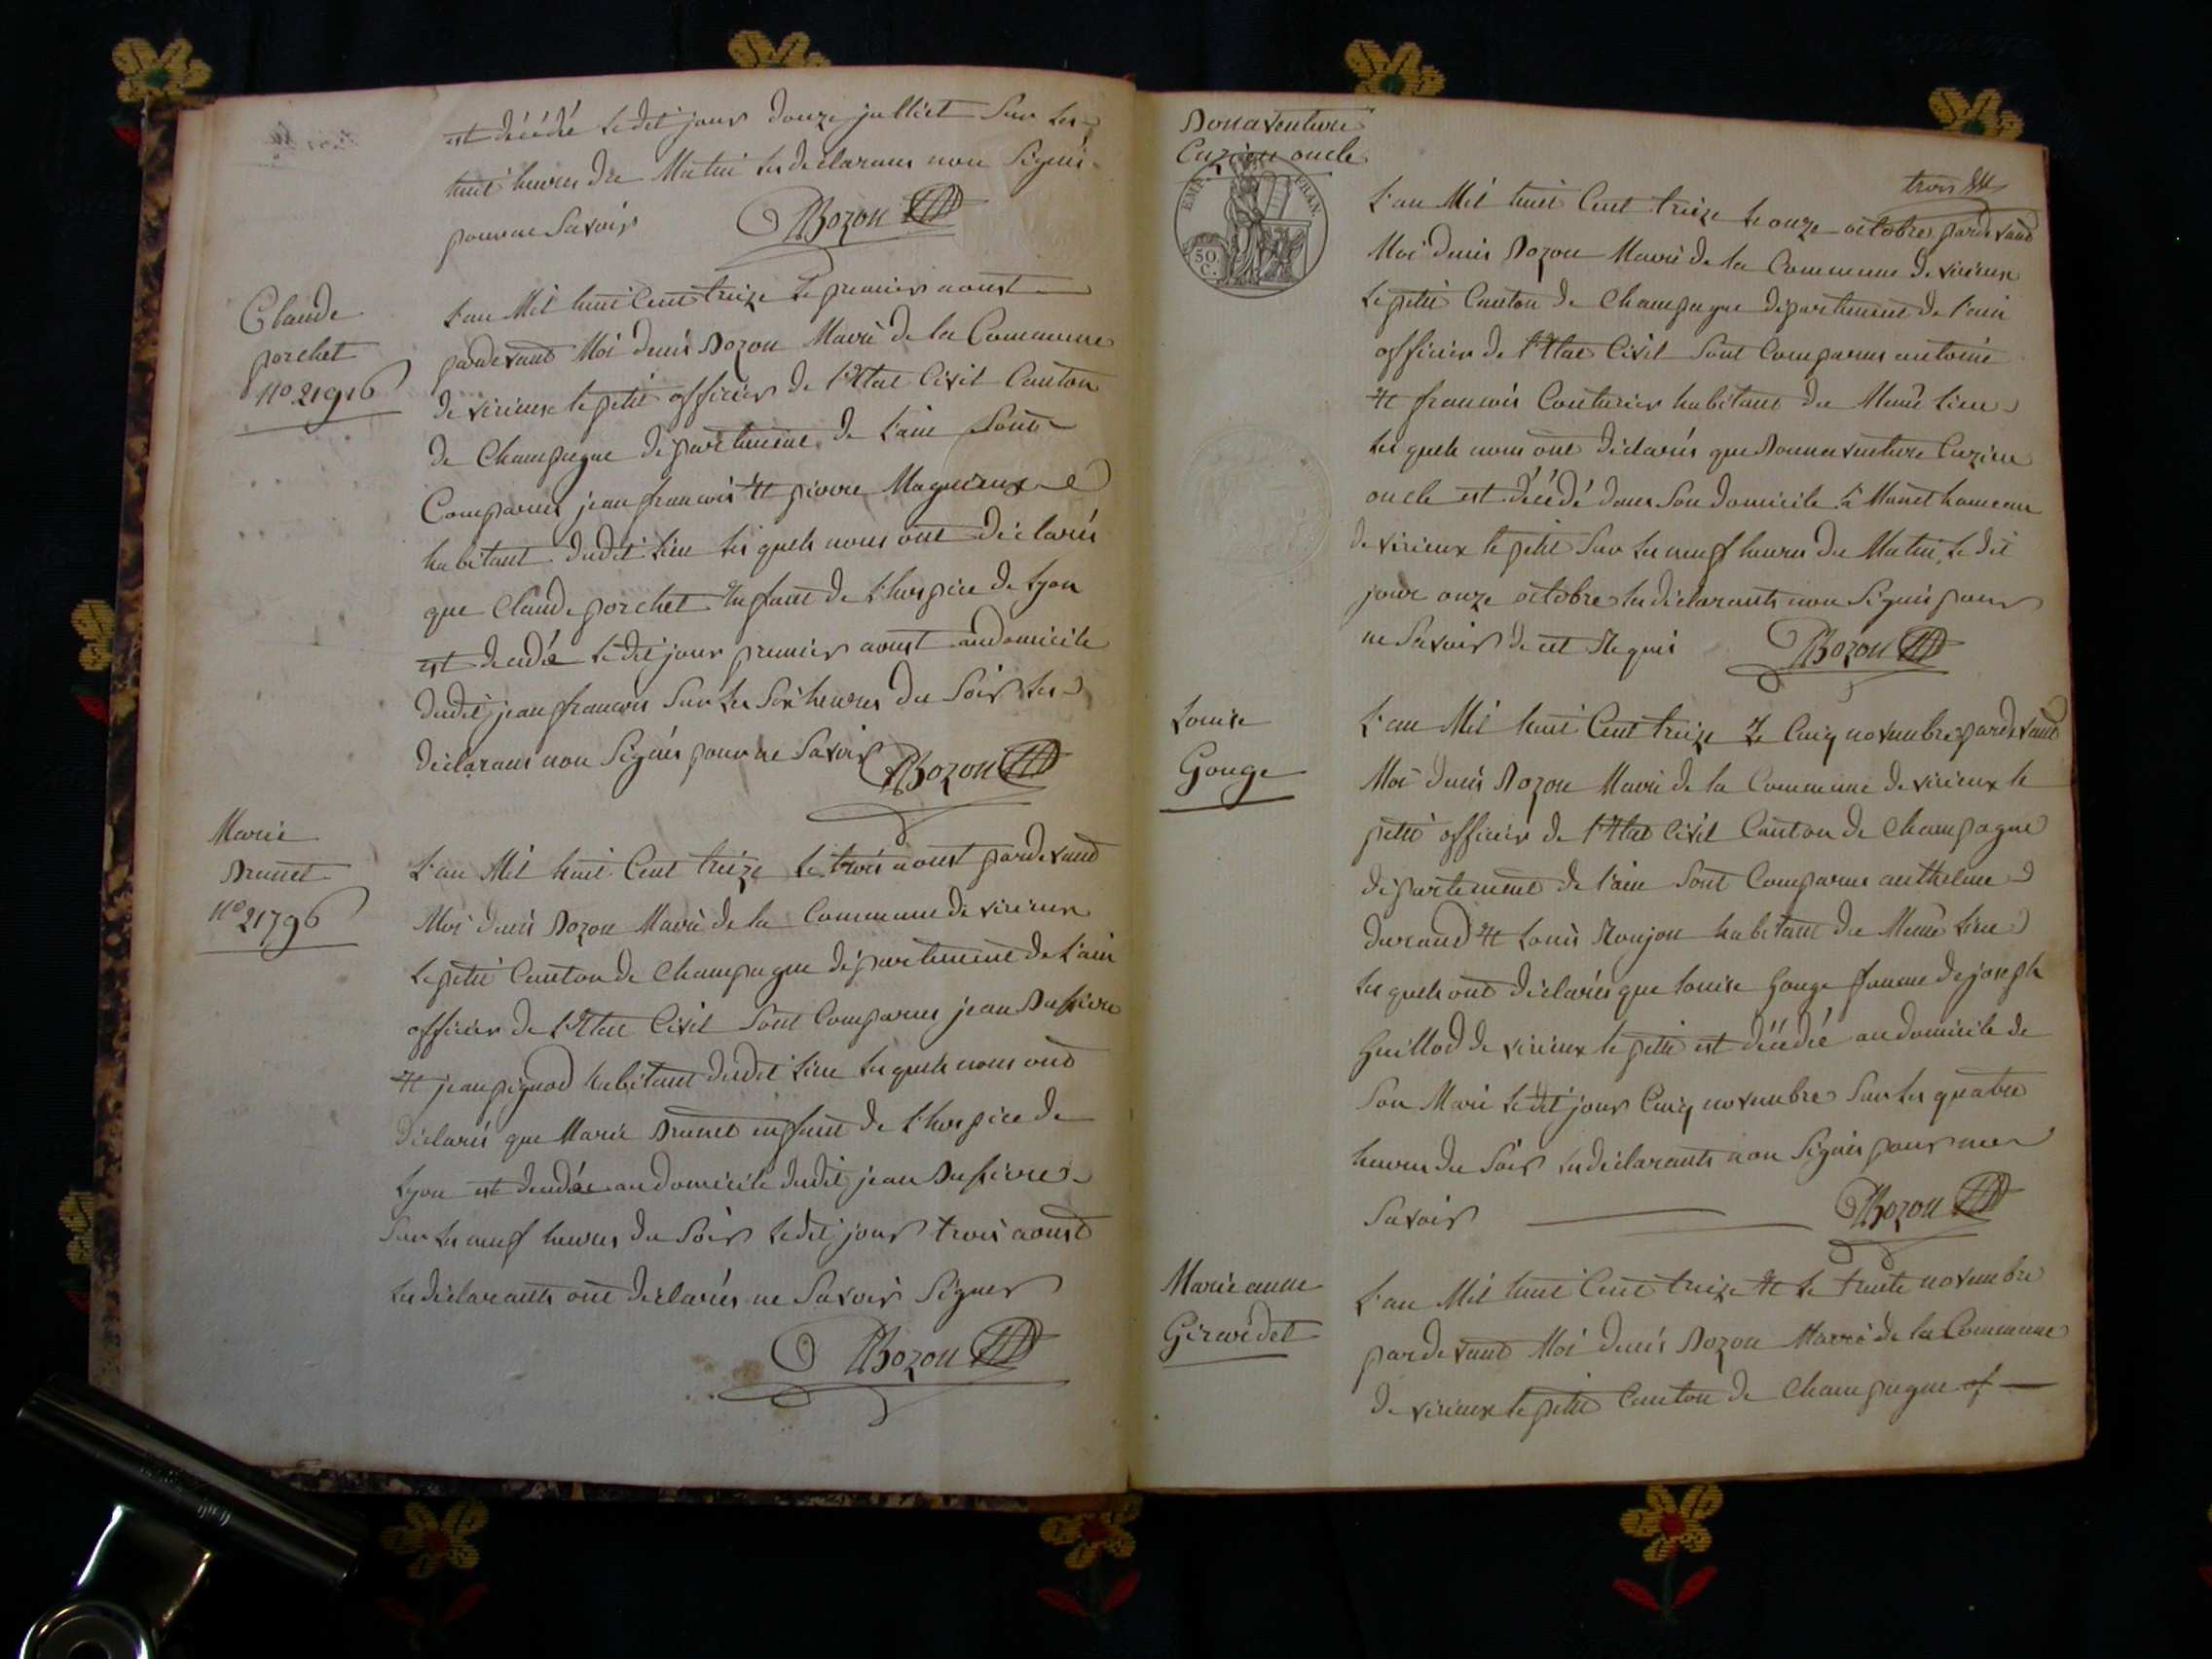 est décédé ledit jour douze julliet Sur les
huit heures du Matin les declarans non Signés
pour ne Savoir Bozon
Claude
porchet
No 21916
L'an Mil huit Cent treize Le premier aoust
pardevant Moi denis Bozon Maire de la Commune
de virieux le petit officier de l'Etat Civil Canton
de Champagne departement de L'ain Sont
Comparus jean francois et pierre Magnieux
habitant dudit Lieu les quels nous ont déclarés
que Claude porchet Enfant de L'hospice de Lyon
est decedé Ledit jour premier aoust audomicile
dudit jean francois Sur les Six heures du Soir les
déclarans non Signés pour ne Savoir Bozon
Marie
Brunet
No 21796
L'an Mil huit Cent treize Le trois aoust pardevant
Moi denis Bozon Maire de la Commune de virieux
Le petit Canton de Champagne département de L'ain
officier de L'Etat Civil Sont Comparus jean
et jean pignod habitant dudit Lieu les quels nous ont
déclarés que Marie Brunet enfant de L'hospice de
Lyon est decedée au domicile dudit jean
Sur les neuf heures du Soir Ledit jour trois aoust
Les déclarants ont déclarés ne Savoir Signer
Bozon
Bonaventure
Cuzieu oncle
EMP. FRAN.
50 C.
trois
L'an Mil huit Cent treize le onze octobre pardevant
Moi denis Bozon Maire de la Commune de virieux
Le petit Canton de Champagne département de L'ain
officier de l'Etat Civil Sont Comparus antoine
et francois Couturier habitant du Même Lieu
les quels nous ont déclarés que Bonnaventure Cuzieu
oncle est décédé dans Son domicile à Munet hameau
de virieux le petit Sur les neuf heures du Matin Le dit
jour onze octobre les déclarants non Signés pour
ne Savoir de cet Requis Bozon
Louise
Gonge
L'an Mil huit Cent treize Le Cinq novembre pardevant
Moi denis Bozon Maire de la Commune de virieux le
petit officier de l'Etat Civil Canton de Champagne
département de L'ain Sont Comparus anthelme
durand et Louis Roujon habitant du Même Lieu
les quels ont déclarés que Louise Gonge femme de joseph
Guillod de virieux le petit est décédée au domicile de
Son Mari Ledit jour Cinq novembre Sur les quatre
heures du Soir les déclarants non Signés pour ne
Savoir Bozon
Marie anne
Girardet
L'an Mil huit Cent treize et Le trente novembre
pardevant Moi denis Bozon Maire de la Commune
de virieux le petit Canton de Champagne of